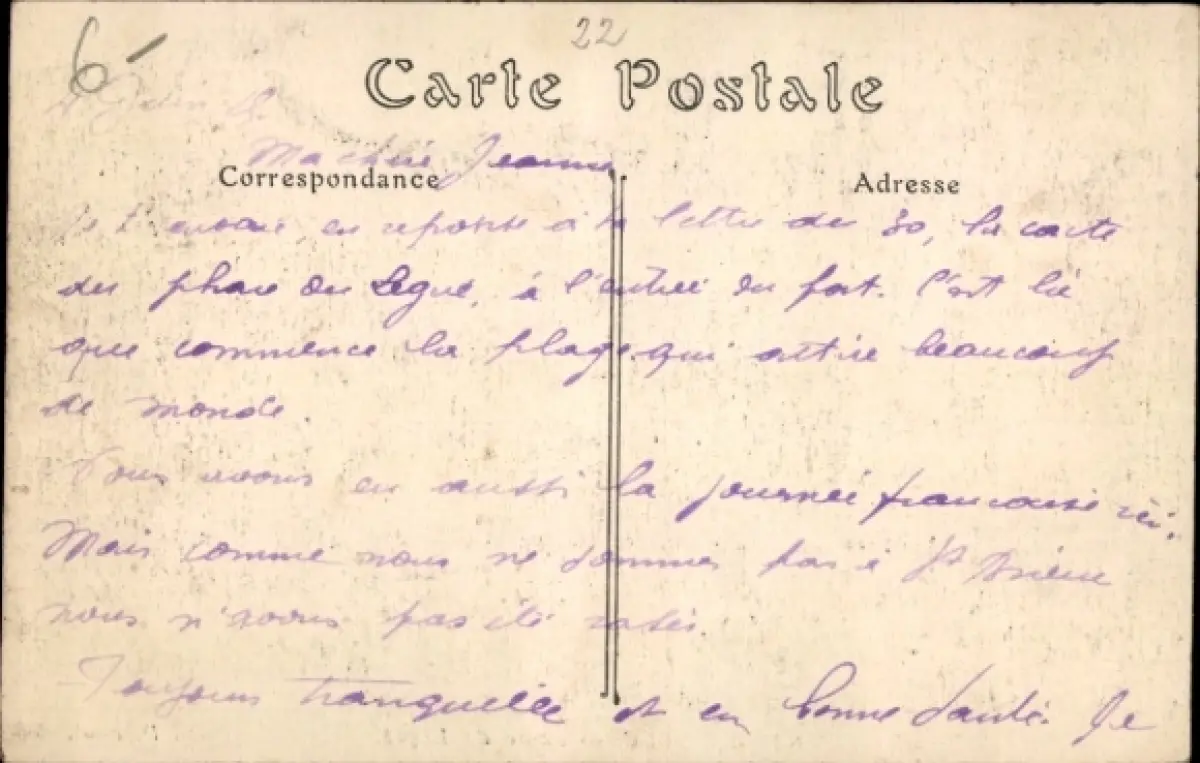 6-
22
Carte Postale
Ma chère Jeanne
Correspondance
Adresse
Je t'envoie, en réponse à ta lettre du 30, la carte
du phare du Légué, à l'entrée du port. C'est là
que commence la plage qui attire beaucoup
de monde.
Nous avons eu aussi la journée française ici.
Mais comme nous ne sommes pas à St Brieuc
nous n'avons pas été
Toujours tranquille et en bonne santé. Je